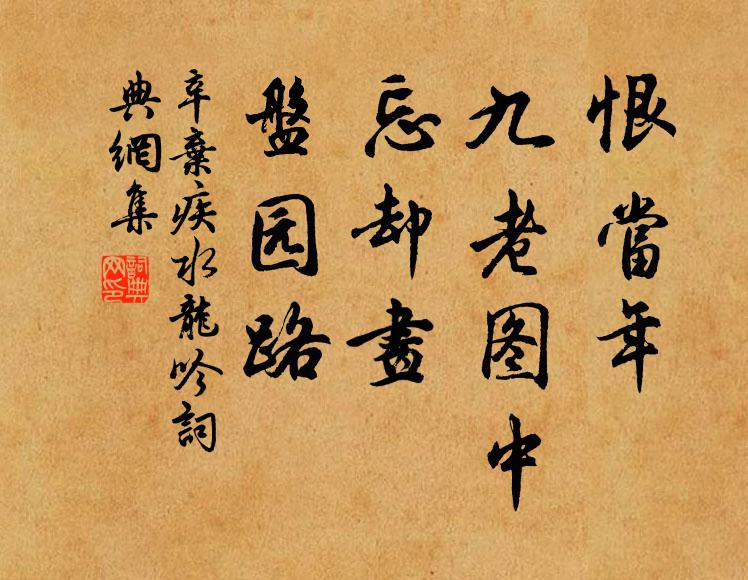 恨當年
九老图中
忘却畫
盤园路
辛棄疾水龍吟詞
典網集
詞典網印